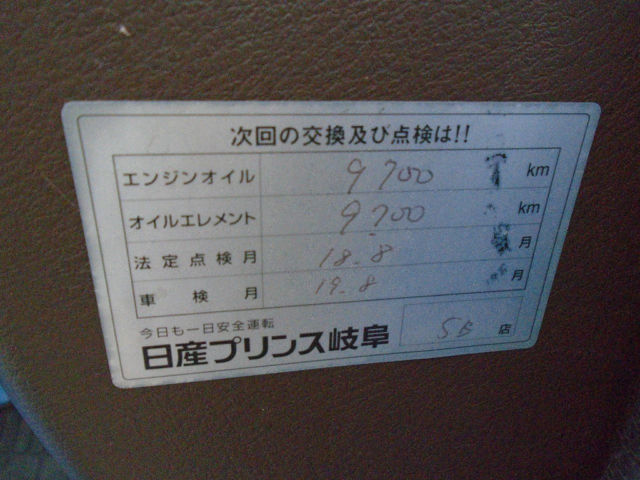 次回の交換及び点検は!!
エンジンオイル 9700 km
オイルエレメント 9700 km
法定点検月 18.8 月
車検月 19.8 月
今日も一日安全運転
日産プリンス岐阜 店